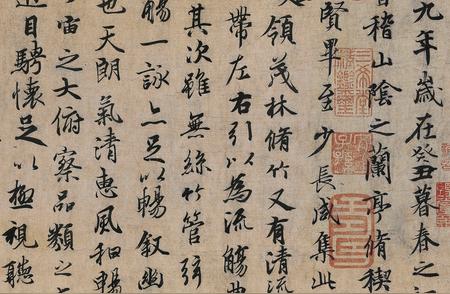 九年歲在癸丑暮春之
稽山陰之蘭亭脩稧
賢畢至少長咸集此
領茂林脩竹又有清流
帶左右引以為流觴曲
其次雖無絲竹管弦
觴一詠亦足以暢叙幽
也天朗氣清惠風和暢
宙之大俯察品類之
目騁懷足以極視聽